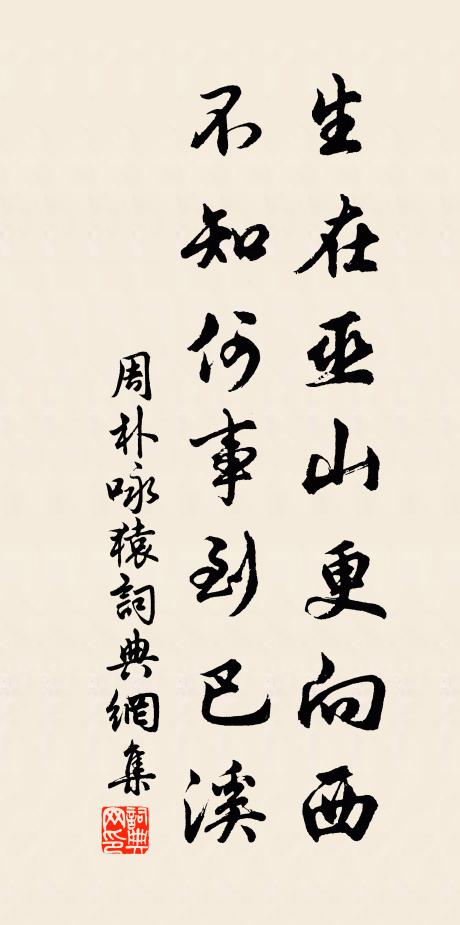 生在巫山更向西
不知何事到巴溪
周朴咏猿詞典網集
詞典
网印